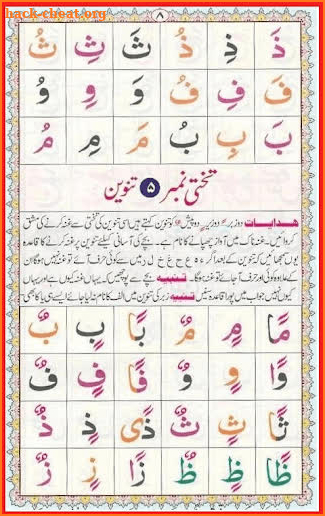 hack-cheat.org
٨
ذَ ذِ ذُ ثَ ثِ ثُ
فَ فِ فُ وَ وِ وُ
بَ بِ بُ مَ مِ مُ
تختی نمبر ۵ تنوین
ھدایات دو زبر ً دو زیر ٍ دو پیش ٌ کو تنوین کہتے ہیں اسی تنوین کی تختی سے غنہ کرنے کی مشق
کروائیں۔ غنہ ناک میں آواز چھپانے کا نام ہے۔ بچے کی آسانی کیلئے تنوین پر غنہ کرنے کا قاعدہ
یوں سمجھائیں کہ تنوین کے بعد اگر ء ہ ع ح غ خ ل ر میں سے کوئی حرف آئے تو غنہ نہ ہوگا۔ ان
کے علاوہ کوئی اور حرف آ جائے تو غنہ ہوگا۔ تنبیہ بچے سے پوچھیں کہ یہاں غنہ کیوں ہے اور یہاں
کیوں نہیں جواب میں پورا قاعدہ سنیں تنبیہ زبر کی تنوین میں الف کا نام نہ لیا جائے ایسے ہی یا کا بھی
مًا مٍ مٌ بًا بٍ بٌ
وًا وٍ وٌ فًا فٍ فٌ
ثًا ثٍ ثٌ ذًى ذٍ ذٌ
ظًا ظٍ ظٌ زًا زٍ زٌ